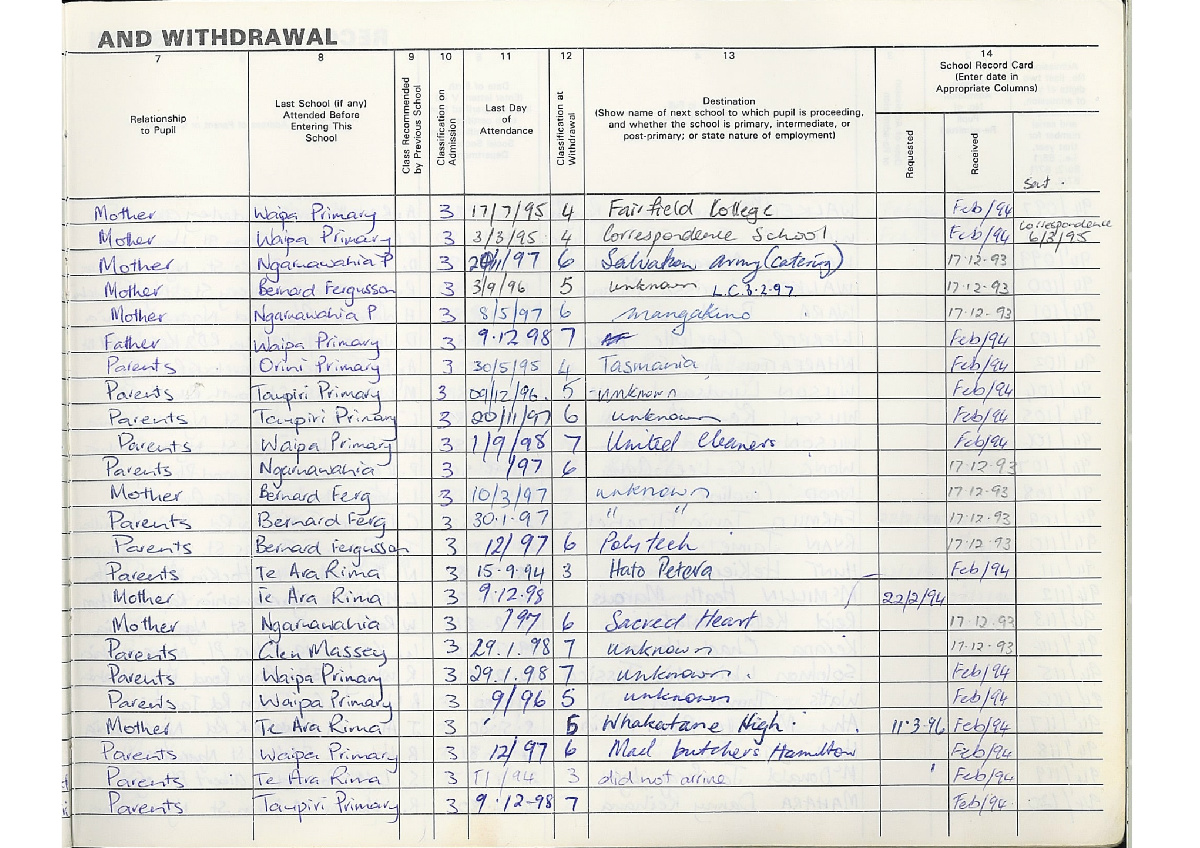 AND WITHDRAWAL
7 8 9 10 11 12 13 14
Relationship to Pupil
Last School (if any) Attended Before Entering This School
Class Recommended by Previous School
Classification on Admission
Last Day of Attendance
Classification at Withdrawal
Destination
(Show name of next school to which pupil is proceeding, and whether the school is primary, intermediate, or post-primary; or state nature of employment)
School Record Card (Enter date in Appropriate Columns)
Requested
Received
Sent.
Mother Waipa Primary 3 17/7/95 4 Fairfield College Feb/94
Mother Waipa Primary 3 3/3/95 4 Correspondence School Feb/94 Correspondence 6/3/95
Mother Ngaruawahia P 3 /97 6 Salvation Army (Catering) 17-12-93
Mother Bernard Fergusson 3 3/9/96 5 unknown L.C. 3-2-97 17-12-93
Mother Ngaruawahia P 3 8/5/97 6 mangakino 17-12-93
Father Waipa Primary 3 9.12.98 7 Feb/94
Parents Orini Primary 3 30/5/95 4 Tasmania Feb/94
Parents Taupiri Primary 3 09/12/96. 5 unknown Feb/94
Parents Taupiri Primary 3 20/11/97 6 unknown Feb/94
Parents Waipa Primary 3 1/9/98 7 United Cleaners Feb/94
Parents Ngaruawahia 3 /97 6 17-12-93
Mother Bernard Ferg 3 10/3/97 unknown 17-12-93
Parents Bernard Ferg 3 30.1.97 " " 17-12-93
Parents Bernard Fergusson 3 12/97 6 Polytech 17-12-93
Parents Te Ara Rima 3 15.9.94 3 Hato Petera Feb/94
Mother Te Ara Rima 3 9.12.98 22/2/94
Mother Ngaruawahia 3 /97 6 Sacred Heart 17-12-93
Parents Glen Massey 3 29.1.98 7 unknown 17-12-93
Parents Waipa Primary 3 29.1.98 7 unknown. Feb/94
Parents Waipa Primary 3 9/96 5 unknown Feb/94
Mother Te Ara Rima 3 5 Whakatane High. 11.3.96 Feb/94
Parents Waipa Primary 3 12/97 6 Mad butchers Hamilton Feb/94
Parents Te Ara Rima 3 T1/94 3 did not arrive Feb/94
Parents Taupiri Primary 3 9.12-98 7 Feb/94